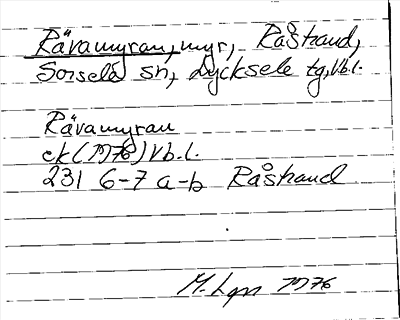 Rävamyran, myr, Råstrand,
Sorsele sn, Lycksele tg, Vb.l.
Rävamyran
ek (1976) Vb.l.
231 6-7 a-b Råstrand
M. Lgn 1976